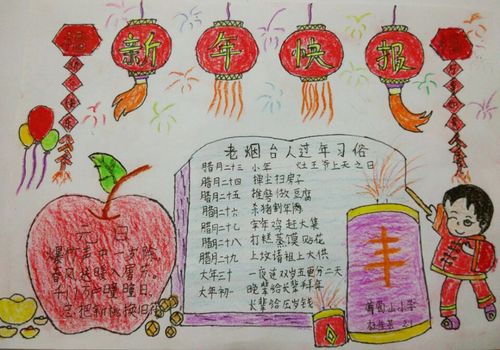 福
新年快报
福
老烟台人过年习俗
腊月二十三 小年 灶王爷上天之日
腊月二十四 掸尘扫房子
腊月二十五 推磨做豆腐
腊月二十六 杀猪割年肉
腊月二十七 宰年鸡 赶大集
腊月二十八 打糕蒸馍贴花
腊月二十九 上坟请祖上大供
大年三十 一夜连双岁五更分二天
大年初一 晚辈给长辈拜年
长辈给压岁钱
元日
爆竹声中一岁除
春风送暖入屠苏
千门万户曈曈日
总把新桃换旧符
丰
山小学